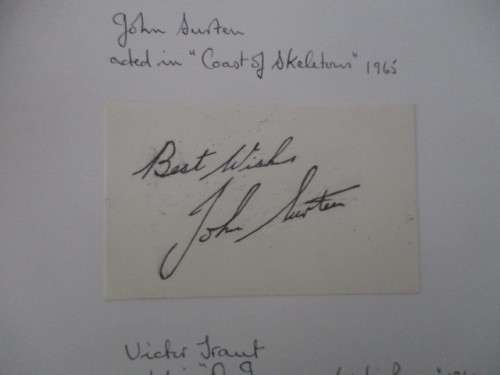 John Surten
acted in "Coast of Skeletons" 1965
Best Wishes
John Surten
Victor Traut